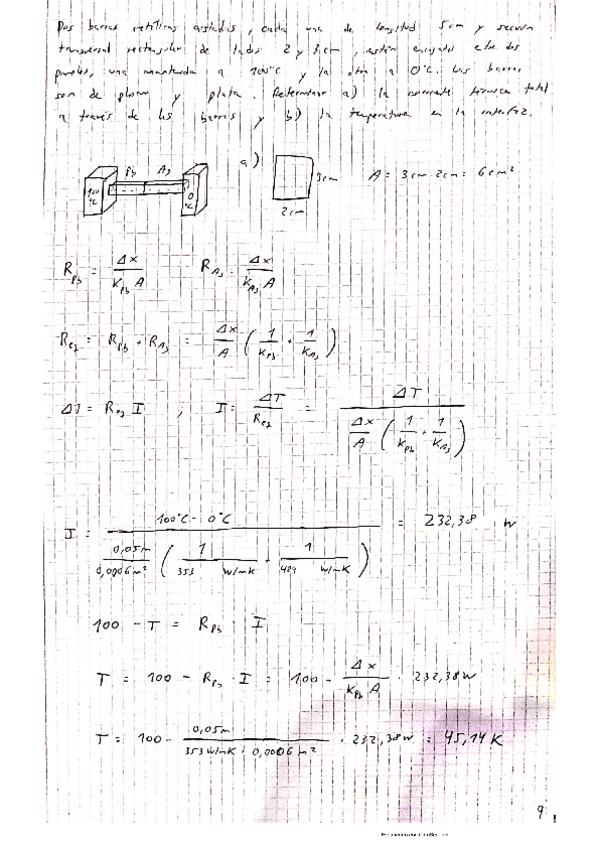 Dos barras metálicas aisladas, cada una de longitud 5cm y sección
transversal rectangular de lados 2 y 3cm, están encajadas entre dos
paredes, una mantenida a 100°C y la otra a 0°C. Las barras
son de plomo y plata. Determinar a) la corriente térmica total
a través de las barras y b) la temperatura en la interfaz.
Pb Ag
100 °C
0 °C
a)
3cm
2cm
A = 3cm·2cm = 6cm²
R_Pb = Δx / (K_Pb A) R_Ag = Δx / (K_Ag A)
R_eq = R_Pb + R_Ag = Δx/A (1/K_Pb + 1/K_Ag)
ΔT = R_eq I ; I = ΔT/R_eq = ΔT / (Δx/A (1/K_Pb + 1/K_Ag))
I = (100°C - 0°C) / (0,05m/0,0006m² (1/(353 W/mK) + 1/(429 W/mK))) = 232,38 W
100 - T = R_Pb · I
T = 100 - R_Pb · I = 100 - Δx/(K_Pb A) · 232,38W
T = 100 - 0,05m/(353W/mK · 0,0006m²) · 232,38W = 45,14K
9